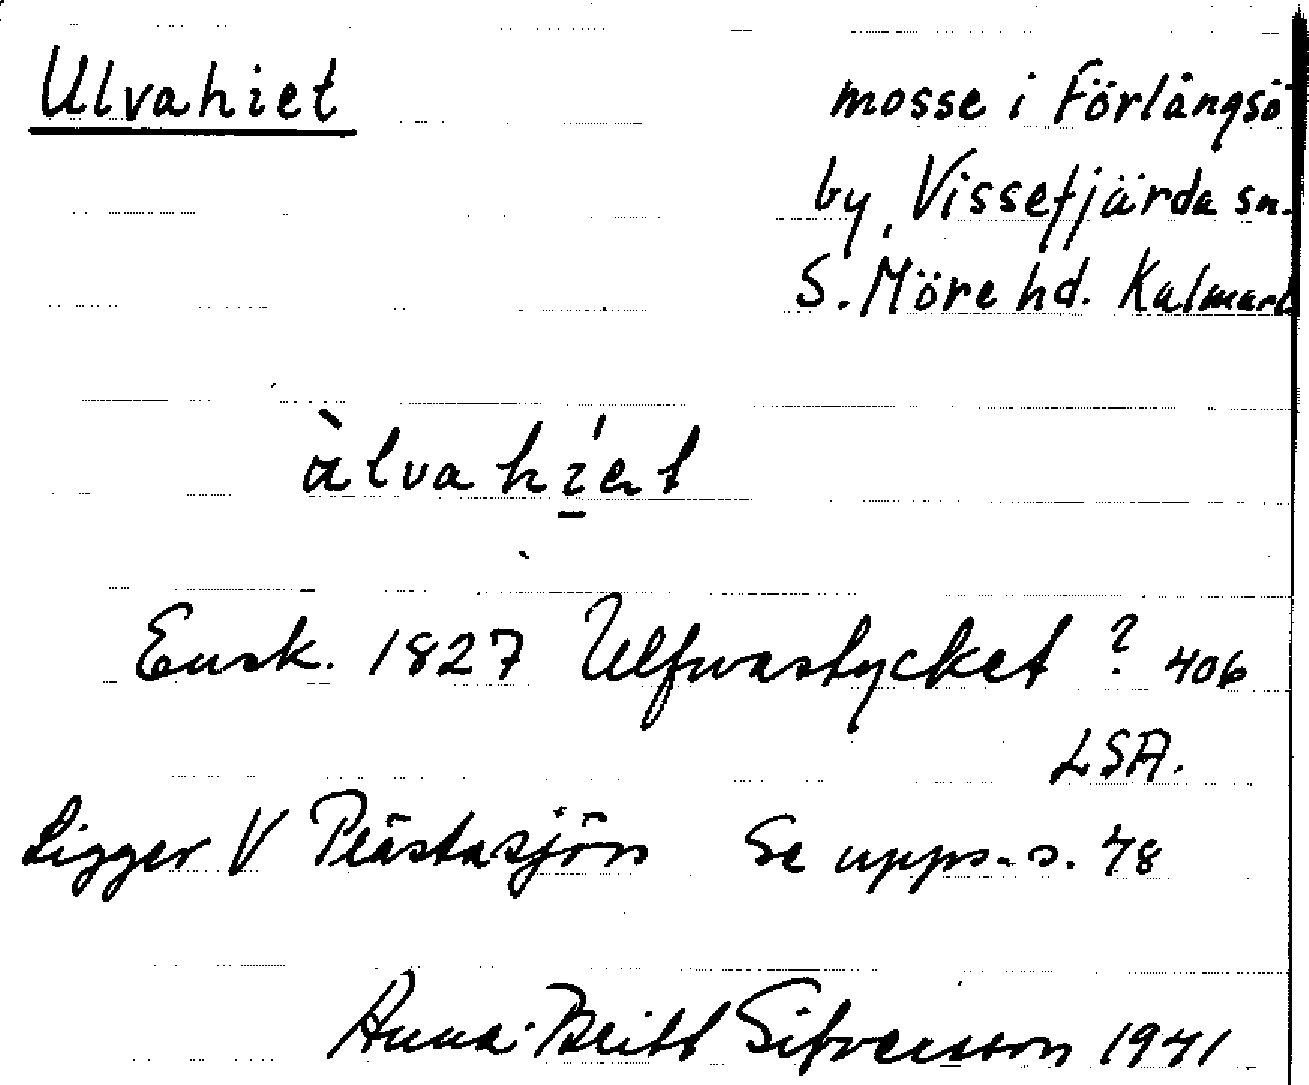 Ulvahiet
mosse i Förlångsö
by, Vissefjärda sn.
S. Möre hd. Kalmarl
àlvahi̱et
Ensk. 1827 Ulfwastycket ? 406
LSA.
Ligger V Se upps. s. 78
Anna-Britt Sifversson 1941